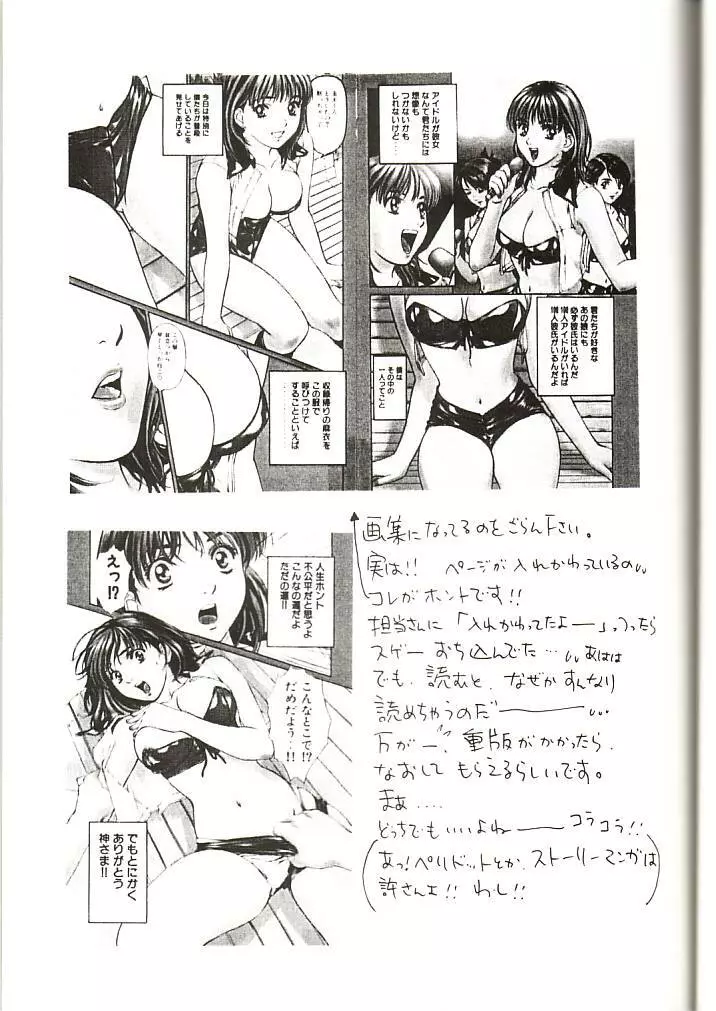 アイドルが彼女
なんて君たちには
想像も
つかないかも
しれないけど…
君たちが好きな
あの娘にも
必ず彼氏はいるんだ
僕は
その中の
一人ってこと
今日は特別に
僕たちが普段
していることを
見せてあげる
収録帰りの麻衣を
この服で
呼びつけて
することといえば
えっ!?
人生ホント
不公平だと思うよ
こんなの運だよ
ただの運!!
こんなとこで!?
だめだよう…!!
でもとにかく
ありがとう
神さま!!
画集になってるのをごらん下さい。
実は!! ページが入れかわっているの
コレがホントです!!
担当さんに「入れかわってたよー」っつったら
スゲー おち込んでた… あはは
でも、読むと、なぜかすんなり
読めちゃうのだ――
万が一、重版がかかったら、
なおして もらえるらしいです。
まぁ‥‥
どっちでもいいよね―― コラコラ!!
(あっ!ペリドットとか、ストーリーマンガは
許さんよ!! わし!!)